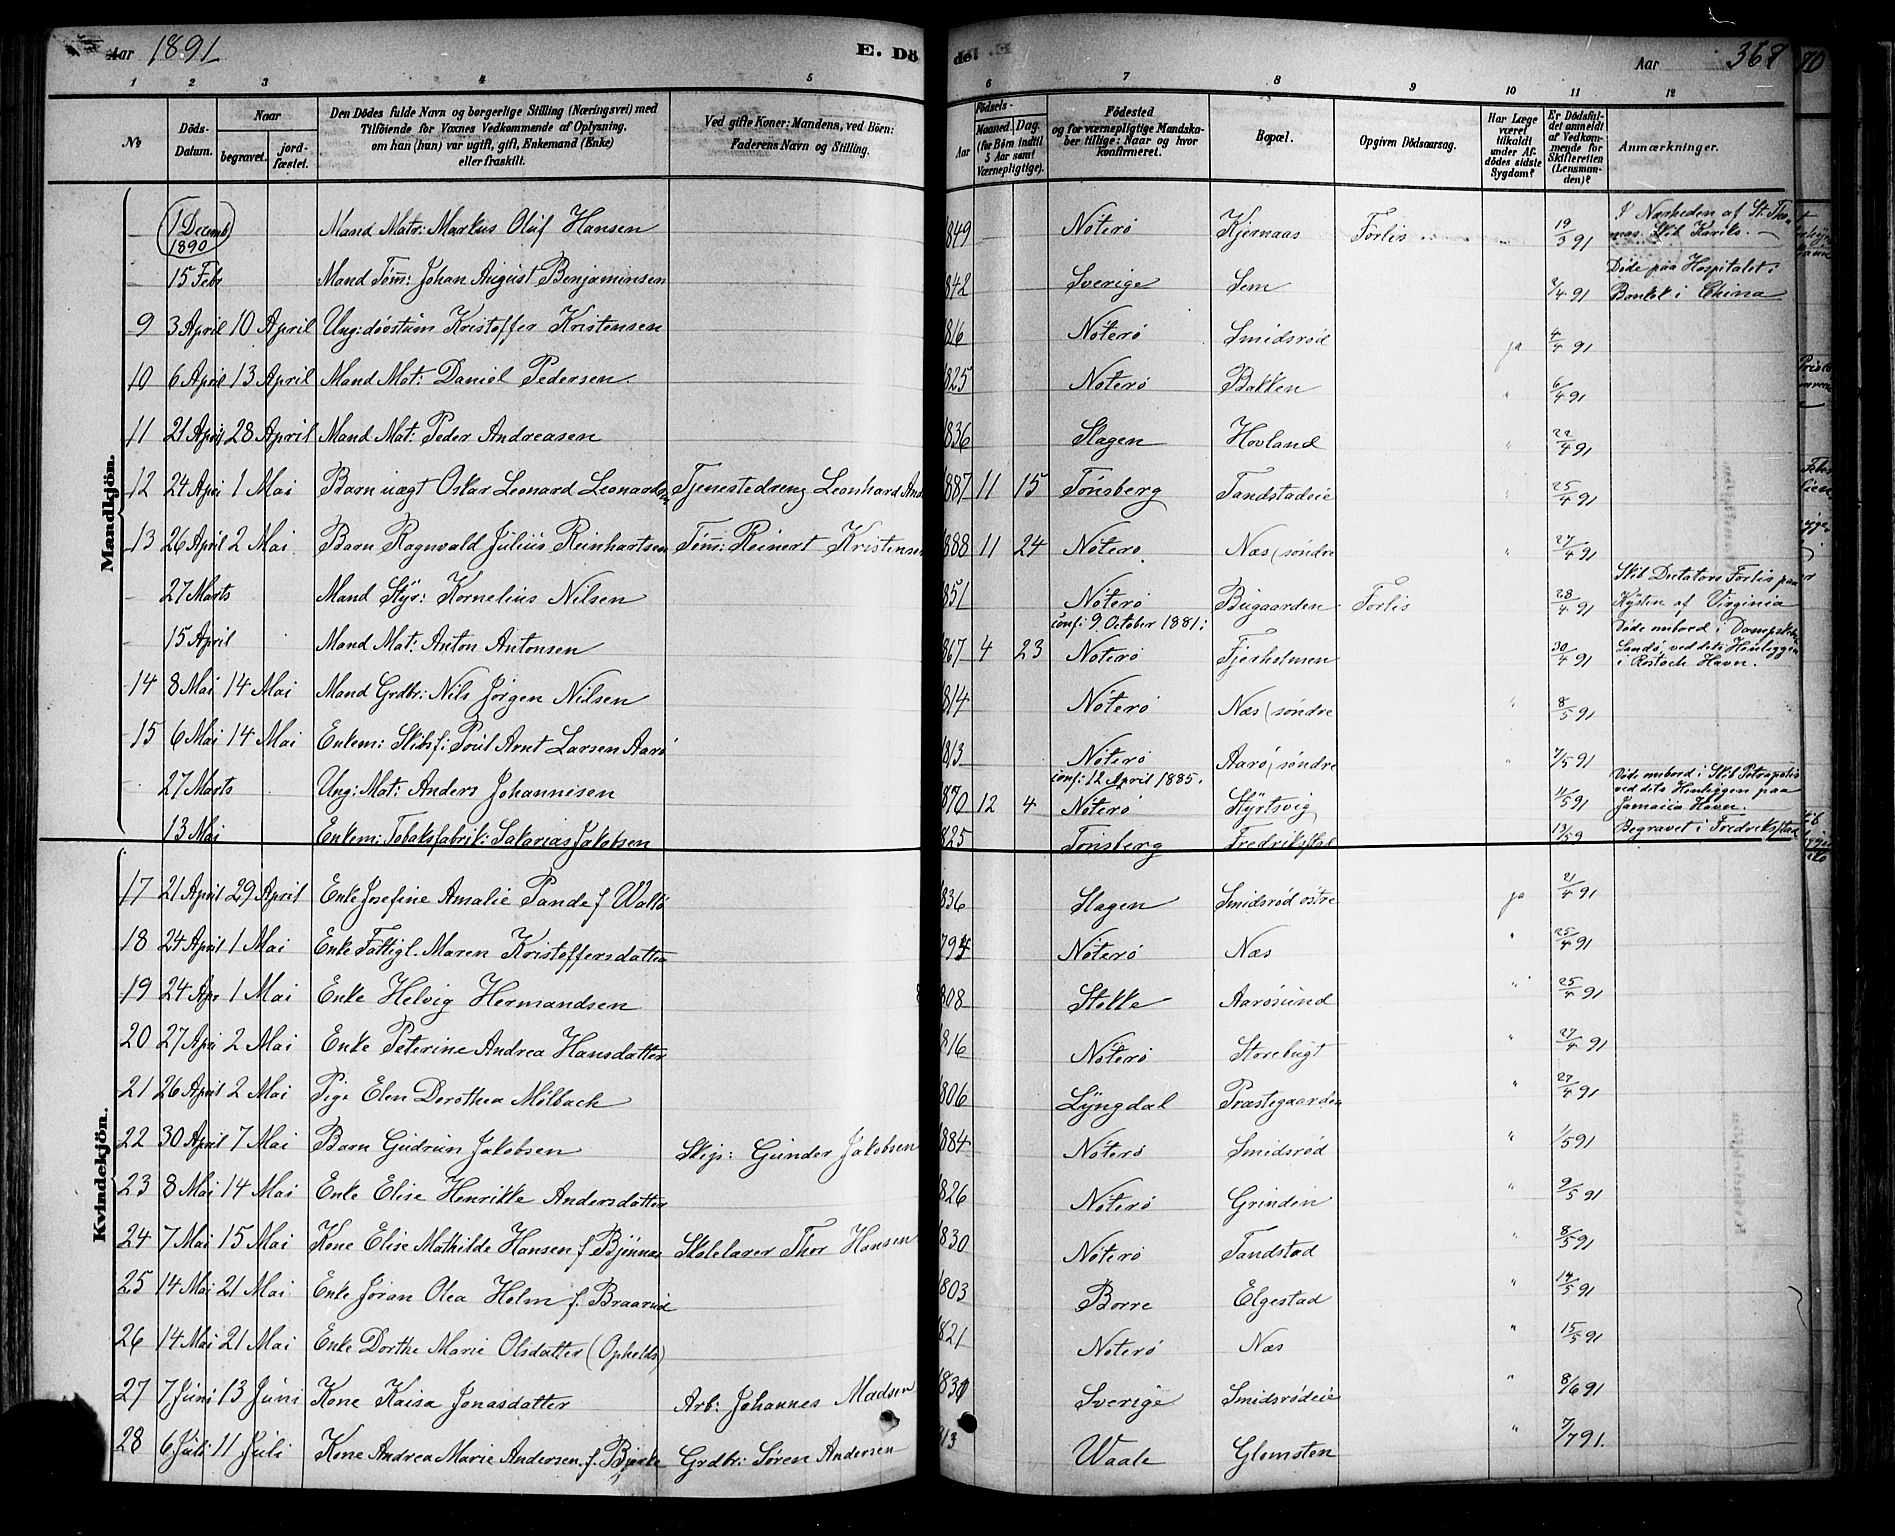 Aar 1891 E. Dö
døl Aar 369
1 2 3 4 5 6 7 8 9 10 11 12
No Döds-Datum. Naar begravet. jordfæstet. Den Dödes fulde Navn og borgerlige Stilling (Næringsvei) med Tilföiende for Voxnes Vedkommende af Oplysning, om han (hun) var ugift, gift, Enkemand (Enke) eller fraskilt. Ved gifte Koner: Mandens, ved Börn: Faderens Navn og Stilling. Födsels- Aar Maaned. Dag (for Børn indtil 5 Aar samt Værnepligtige). Födested og for værnepligtige Mandskaber tillige: Naar og hvor konfirmeret. Bopæl. Opgiven Dödsaarsag. Har Læge været tilkaldt under Afdödes sidste Sygdom? Er Dödsfaldet anmeldt af Vedkommende for Skifteretten (Lensmanden)? Anmærkninger.
Mandkjön.
1 Decemb 1890 Mand Matr: Markus Oluf Hansen 849 Nøterø Kjernaas Forlis 19/3 91 I Nærheden af St. Thomas. Skib Kariks.
15 Febr Mand Tøm: Johan August Benjaminsen 842 Sverige Sem 7/4 91 Døde paa Hospitalet i China
9 3 April 10 April Ung: døvstum Kristoffer Kristensen 816 Nøterø Smidsrød ja 4/4 91
10 6 April 13 April Mand Mat: Daniel Pedersen. 825 Nøterø Bakken " 6/4 91
11 21 April 28 April Mand Mat: Peder Andreasen 836 Slagen Hovland " 22/4 91
12 24 Apri 1 Mai Barn uægt Oskar Leonard Leonardsen Tjenestedreng Leonhard And 887 11 15 Tønsberg Tandstadeie " 25/4 91
13 26 April 2 Mai Barn Ragnvald Julius Reinhartsen Tøm: Reinert Kristensen 888 11 24 Nøterø Næs (søndre " 27/4 91
27 Marts Mand Styr: Kornelius Nilsen 851 Nøterø Bugaarden Forlis 28/4 91 Skib Dictator Forlis paa Kysten af Virginia
15 April Mand Mat: Anton Antonsen 867 4 23 conf: 9 October 1881: Nøterø Fjerholmen 30/4 91 Døde ombord i Sandø, ved dets Henliggen i Rostock Havn.
14 8 Mai 14 Mai Mand Grdbr: Nils Jørgen Nilsen 814 Nøterø Næs (søndre " 8/5 91
15 6 Mai 14 Mai Enkem: Skibsf: Poul Arnt Larsen Aarø 813 Nøterø Aarø (søndre " 7/5 91
27 Marts Ung: Mat: Anders Johannisen 870 12 4 conf: 12 April 1885. Nøterø Styrtsvig 11/5 91 Døde ombord i Skib Petropolis ved dets Henliggen paa Jamaica Havn.
13 Mai Enkem: Tobaksfabrik: Sakarias Jakobsen 825 Tønsberg Fredrikstad 13/59 Begravet i Fredrikstad
Kvindekjön.
17 21 April 29 April Enke Josefine Amalie Pande f Walløe 836 Slagen Smidsrød østre ja 21/4 91
18 24 April 1 Mai Enke Fattigl. Maren Kristoffersdatter 794 Nøterø Næs " 25/4 91
19 24 Apr 1 Mai Enke Helvig Hermandsen 808 Stokke Aarøsund " 25/4 91
20 27 Apri 2 Mai Enke Peterine Andrea Hansdatter 816 Nøterø Storebugt " 27/4 91
21 26 April 2 Mai Pige Elen Dorothea Mølback 806 Lyngdal Præstegaarden " 27/4 91
22 30 April 7 Mai Barn Gudrun Jakobsen Skip: Gunder Jakobsen 884 Nøterø Smidsrød " 1/5 91
23 8 Mai 14 Mai Enke Elise Henrikke Andersdatter 826 Nøterø Grinden " 9/5 91
24 7 Mai 15 Mai Kone Elise Mathilde Hansen f. Bjønnæs Skolelærer Thor Hansen 830 Nøterø Tandstad " 8/5 91
25 14 Mai 21 Mai Enke Jøran Olea Holm f. Braarud 803 Borre Elgestad " 14/5 91
26 14 Mai 21 Mai Enke Dorthe Marie Olsdatter (Opholds) 821 Nøterø Næs " 15/5 91
27 7 Juni 13 Juni Kone Kaisa Jonasdatter Arb: Johannes Madsen 830 Sverige Smidsrødeie " 8/6 91
28 6 Juli 11 Juli Kone Andrea Marie Andersen f. Bjerke Grdbr: Søren Andersen 813 Waale Glomsten " 7/7 91.